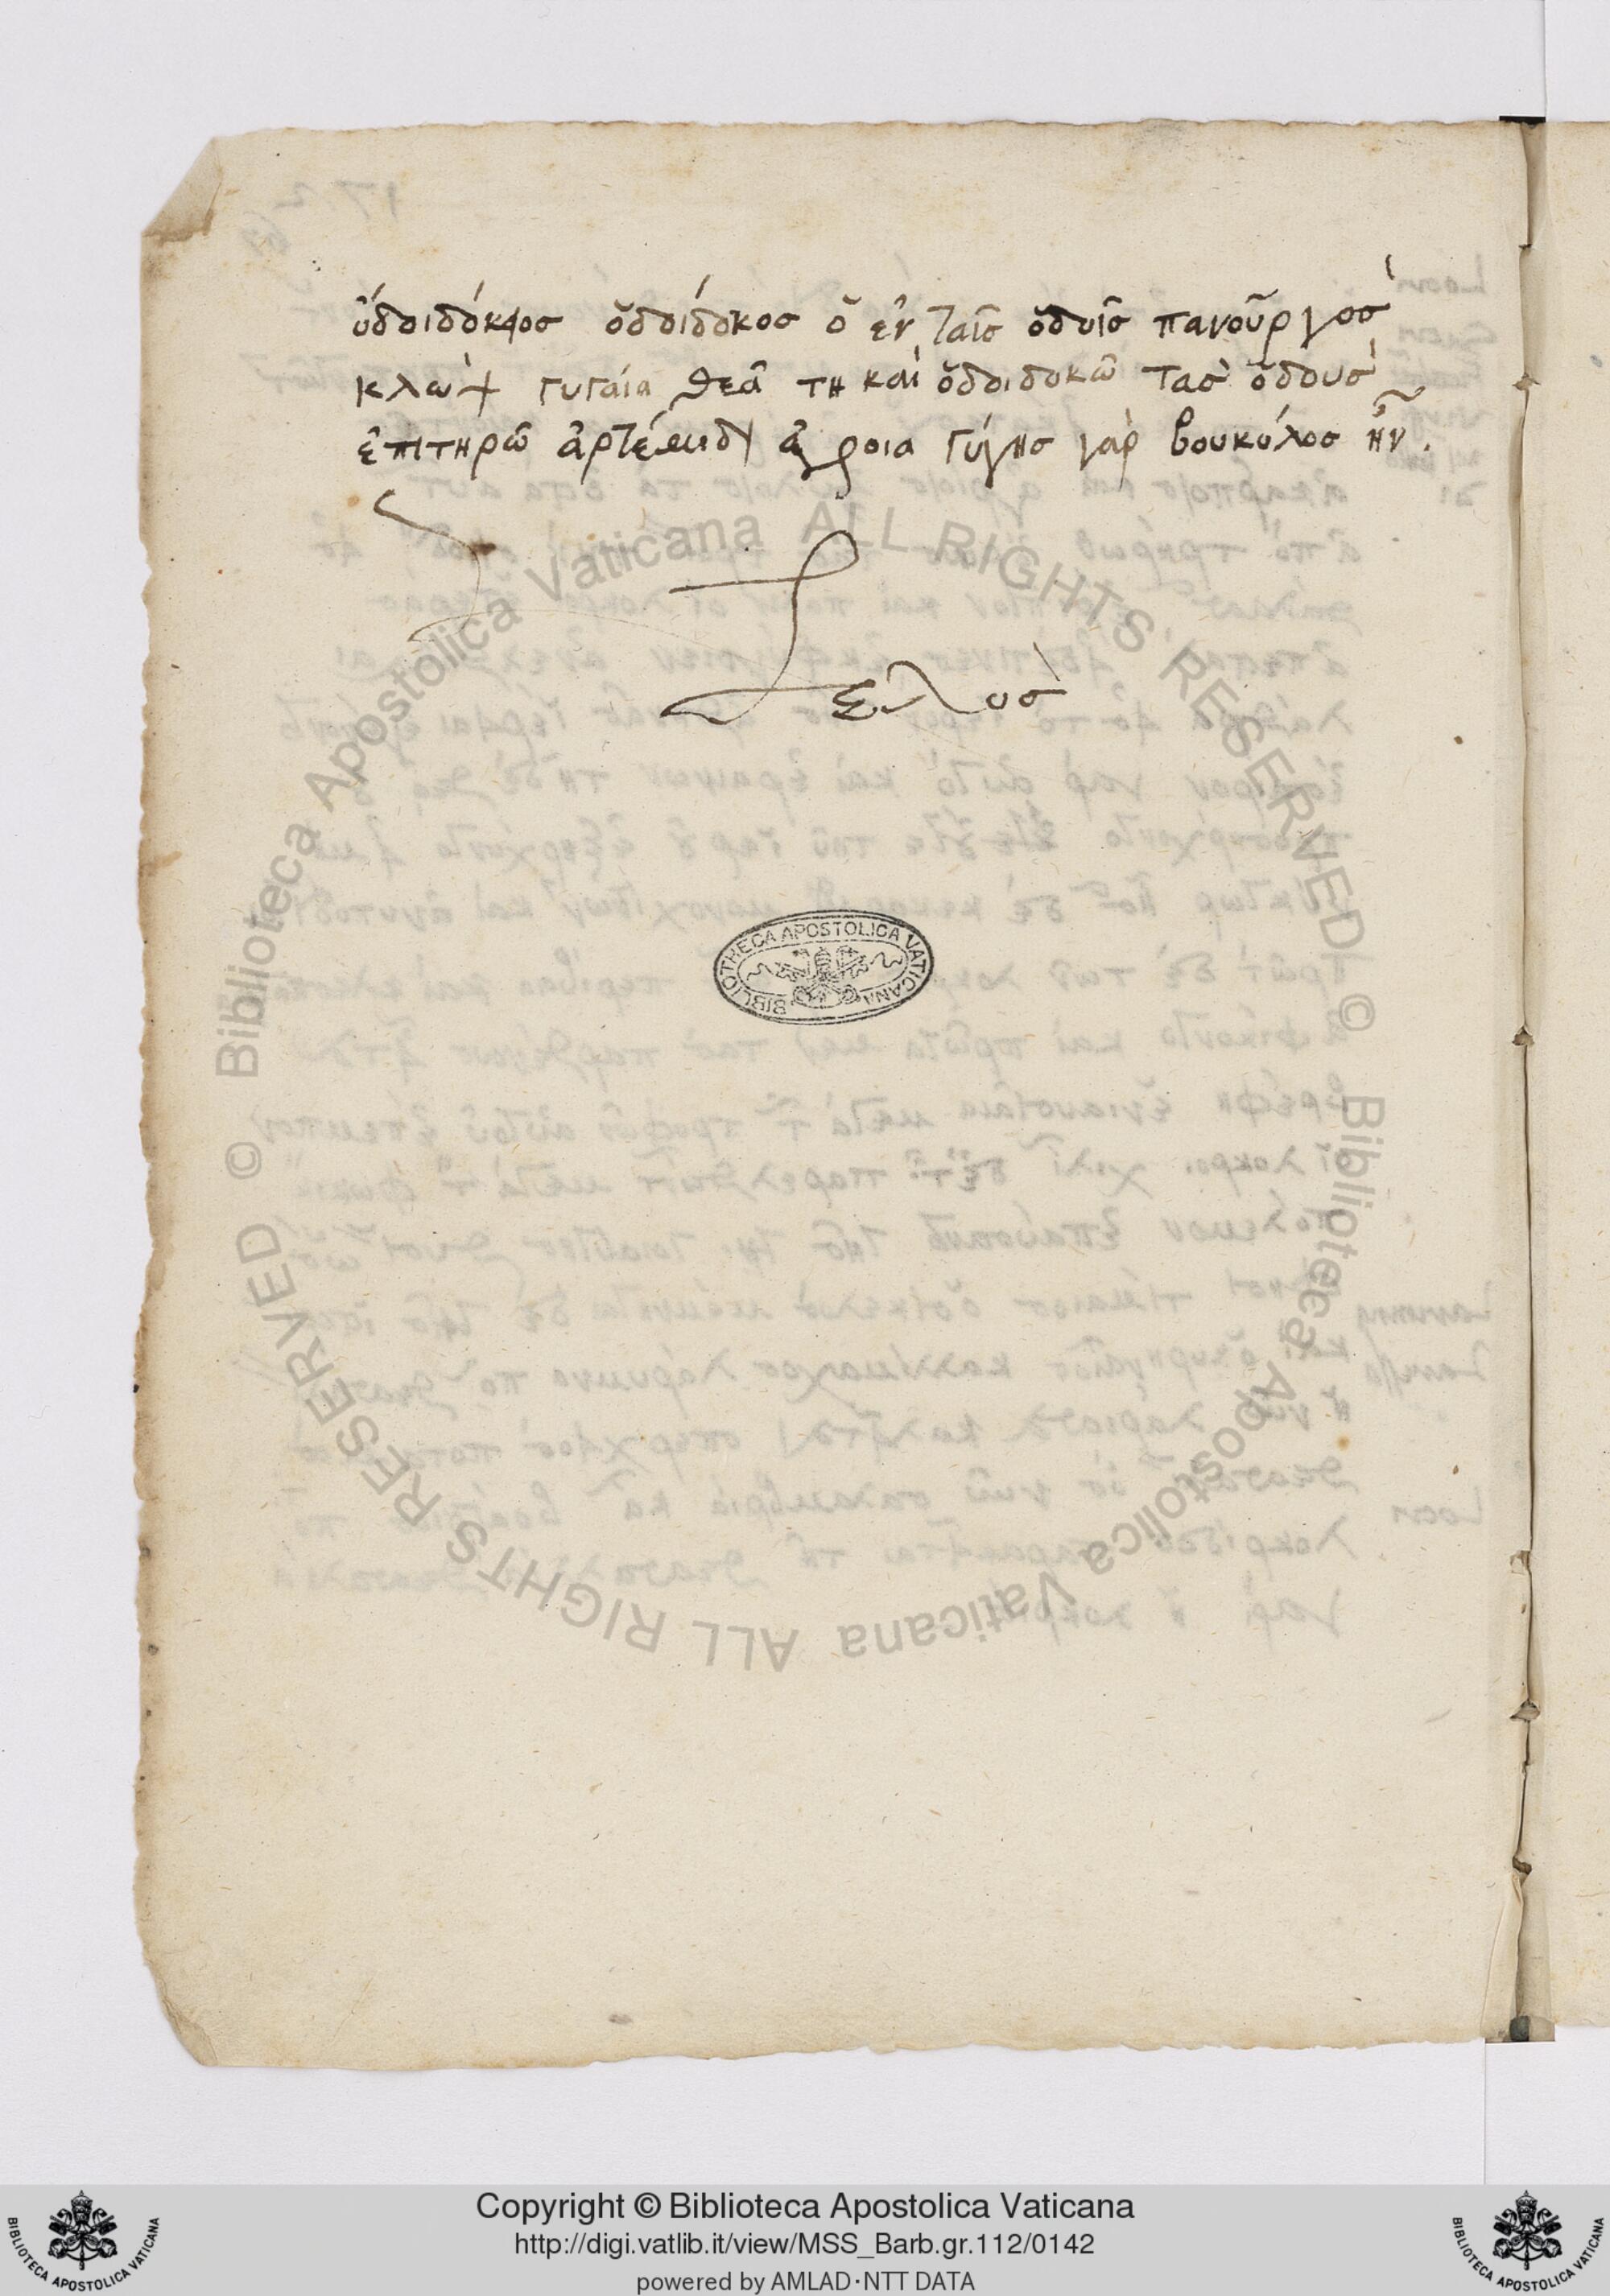 ὁδοιδόκος ὁδοιδόκος ὁ ἐν ταῖς ὁδοῖς πανοῦργος
κλὼψ γυγαία θεᾶ τη καὶ ὁδοιδοκῶ τὰς ὁδοὺς
ἐπιτηρῶ ἀρτέμιδι ἀγροια γύγης γὰρ βουκόλος ἦν.
Τελος
BIBLIOTHECA APOSTOLICA VATICANA
© Biblioteca Apostolica Vaticana ALL RIGHTS RESERVED
© Biblioteca Apostolica Vaticana ALL RIGHTS RESERVED
Copyright © Biblioteca Apostolica Vaticana
http://digi.vatlib.it/view/MSS_Barb.gr.112/0142
powered by AMLAD·NTT DATA
BIBLIOTECA APOSTOLICA VATICANA
BIBLIOTECA APOSTOLICA VATICANA